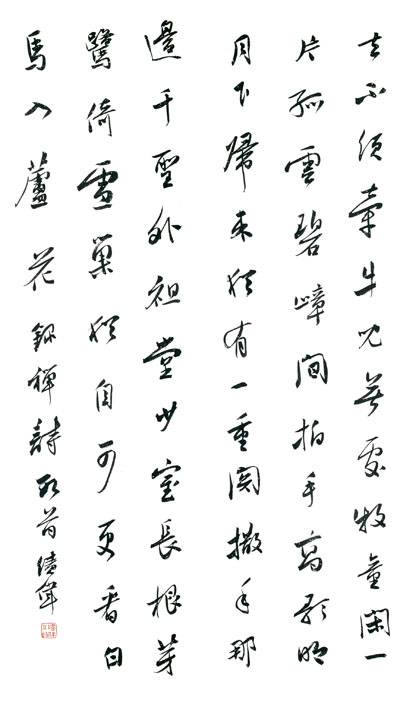 去不須牽牛兒無處牧童閑一
片孤雲碧嶂間拍手高歌明
月下歸来猶有一重関撒手那
邊千聖外祖堂少室長根芽
鷺倚雪巢猶自可更看白
馬入蘆花錄禪詩首